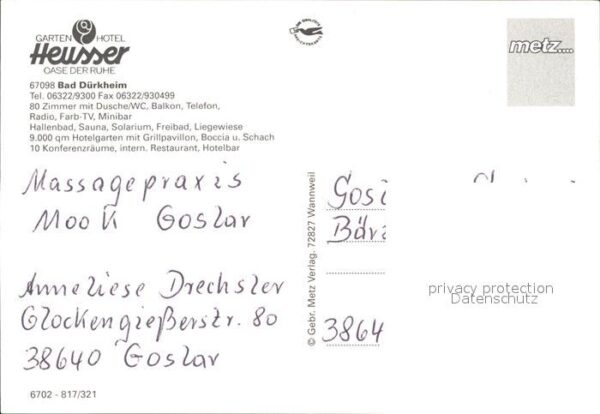 GARTEN HOTEL
Heusser
OASE DER RUHE
67098 Bad Dürkheim
Tel. 06322/9300 Fax 06322/930499
80 Zimmer mit Dusche/WC, Balkon, Telefon,
Radio, Farb-TV, Minibar
Hallenbad, Sauna, Solarium, Freibad, Liegewiese
9.000 qm Hotelgarten mit Grillpavillon, Boccia u. Schach
10 Konferenzräume, intern. Restaurant, Hotelbar
metz....
Massagepraxis
Mook Goslar
Anneliese Drechsler
Glockengießerstr. 80
38640 Goslar
6702 - 817/321
© Gebr. Metz Verlag, 72827 Wannweil
3864
privacy protection
Datenschutz